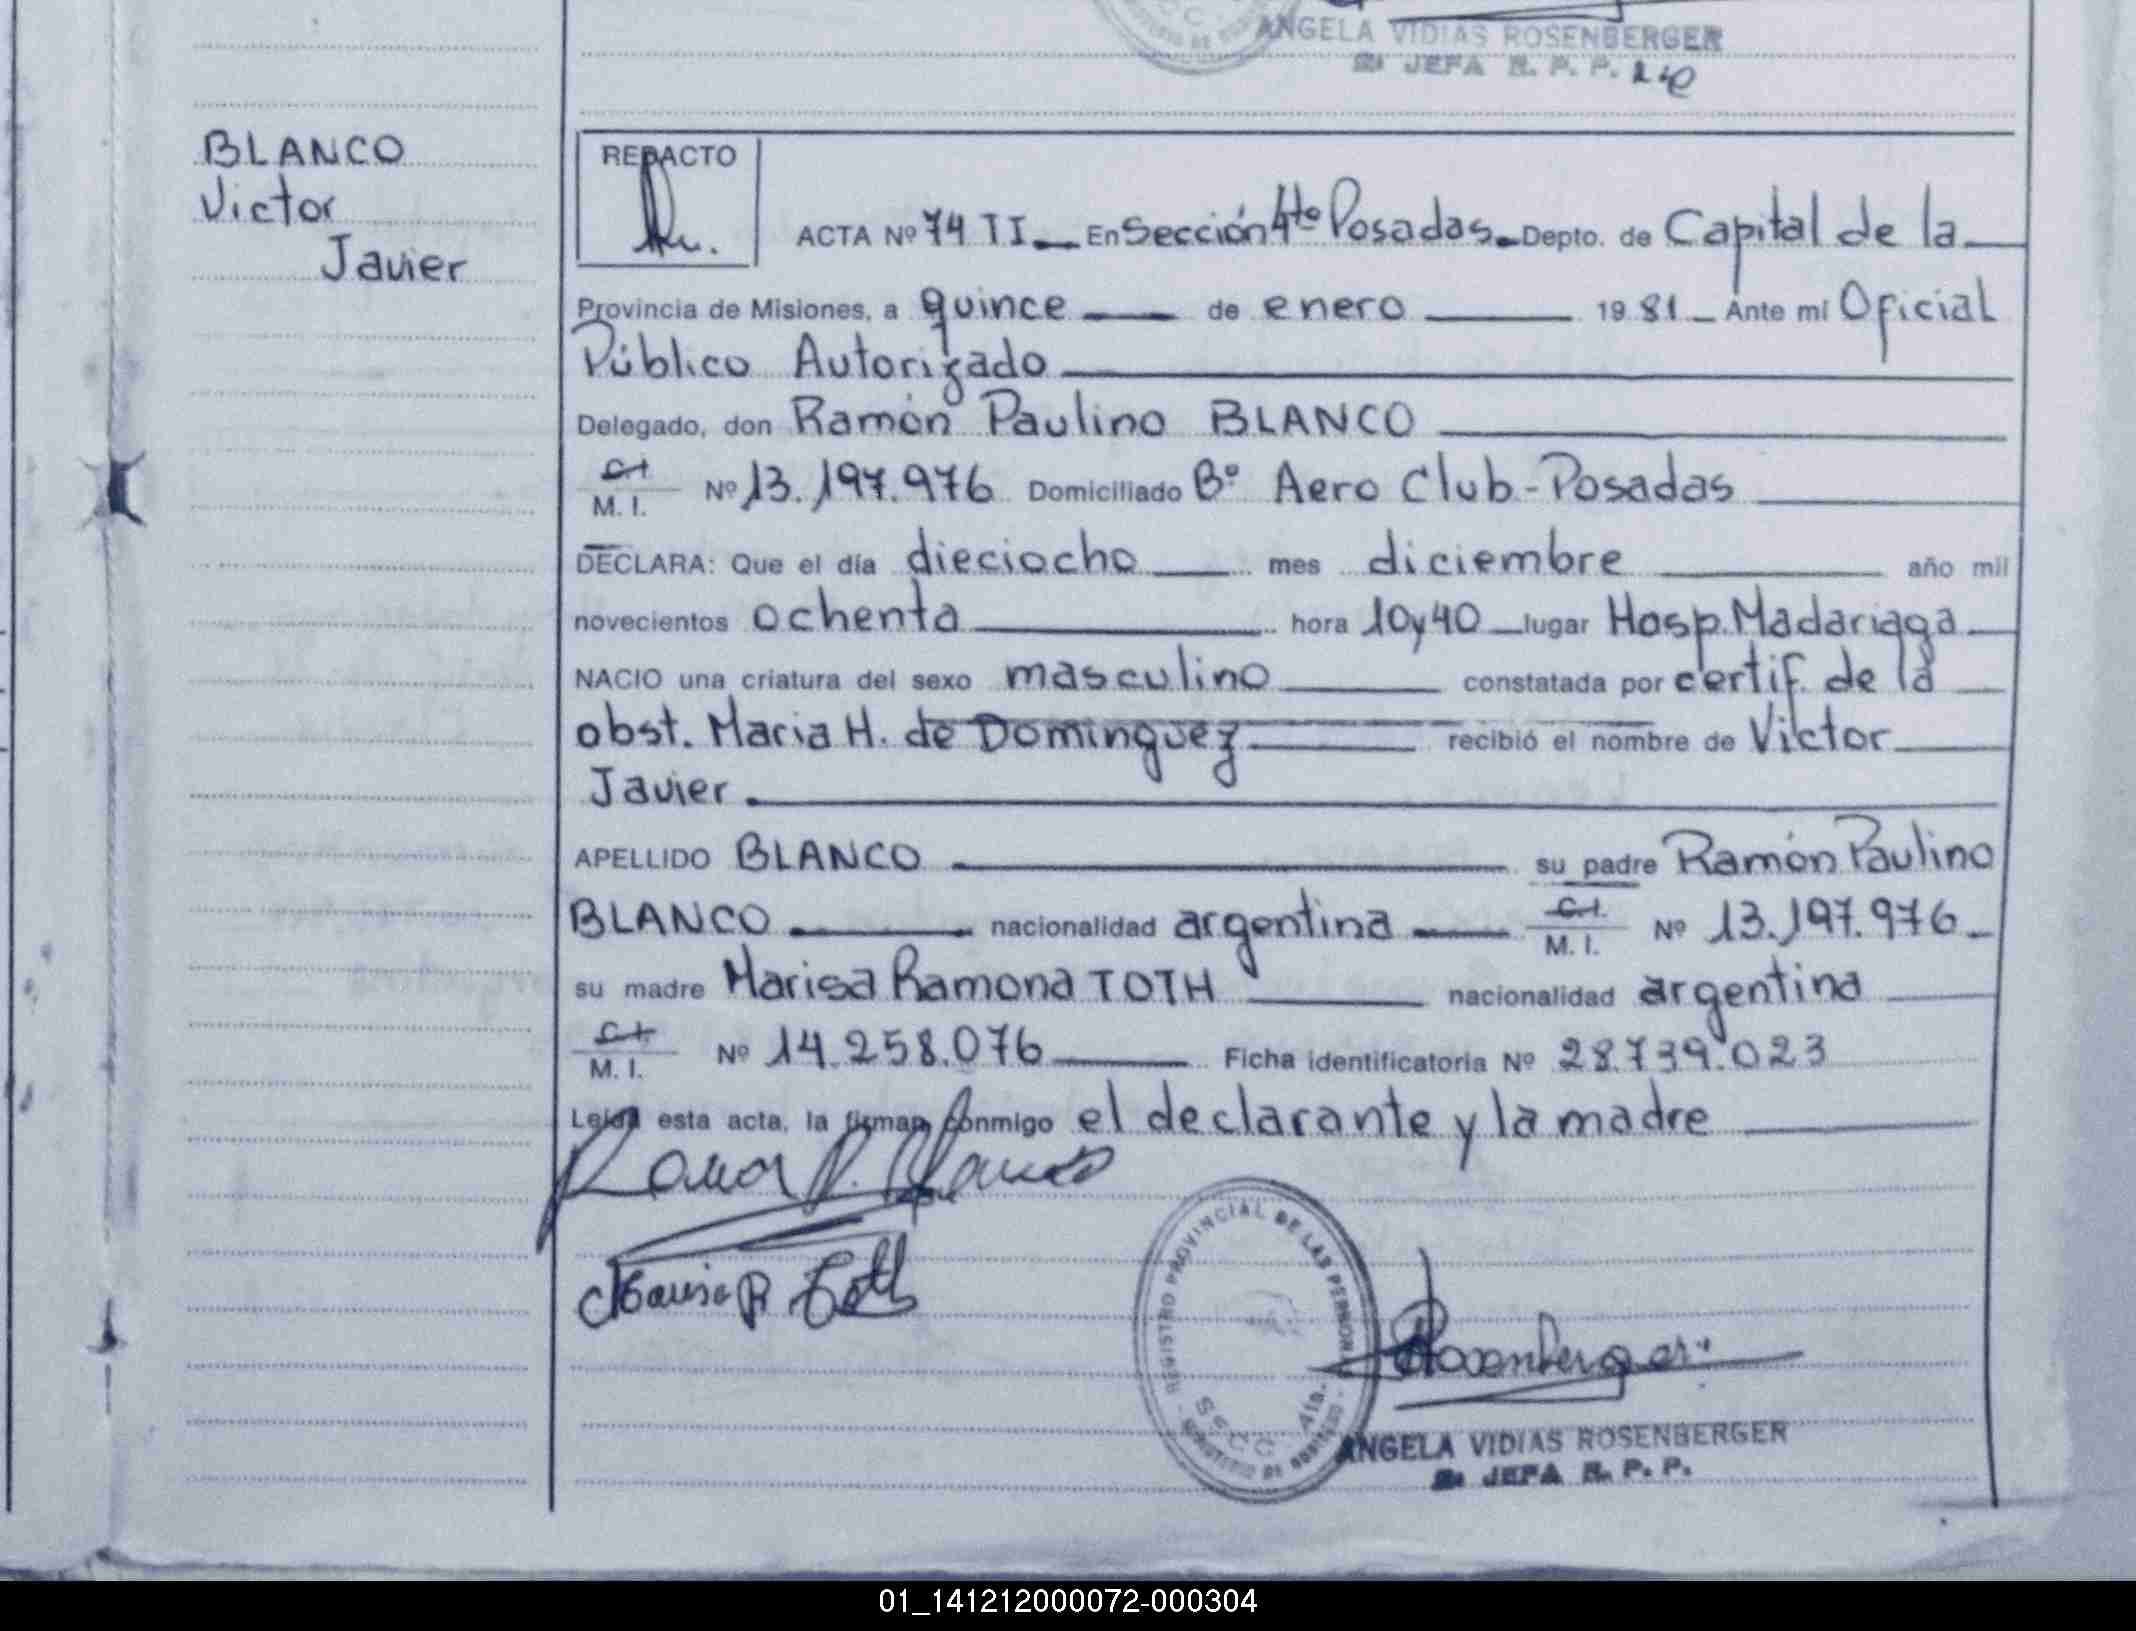 ANGELA VIDIAS ROSENBERGER
JEFA R. P. P.
BLANCO
Victor
Javier
REDACTO
ACTA Nº 74 TI En Sección 4ta Posadas. Depto. de Capital de la
Provincia de Misiones, a quince de enero 1981 Ante mí Oficial
Público Autorizado
Delegado, don Ramón Paulino BLANCO
C.I.
M. I. Nº 13.197.976 Domiciliado Bº Aero Club-Posadas
DECLARA: Que el día dieciocho mes diciembre año mil
novecientos ochenta hora 10y40 lugar Hosp. Madariaga
NACIO una criatura del sexo masculino constatada por certif. de la
obst. Maria H. de Dominguez recibió el nombre de Victor
Javier.
APELLIDO BLANCO su padre Ramón Paulino
BLANCO nacionalidad argentina C.I. M. I. Nº 13.197.976
su madre Marisa Ramona TOTH nacionalidad argentina
C.I.
M. I. Nº 14.258.076 Ficha identificatoria Nº 28.739.023
Leída esta acta, la firman conmigo el declarante y la madre
Ramon P. Blanco
Marisa R Toth
REGISTRO PROVINCIAL DE LAS PERSONAS
SECC. 4ta.
Rosenberger
ANGELA VIDIAS ROSENBERGER
JEFA R. P. P.
01_141212000072-000304